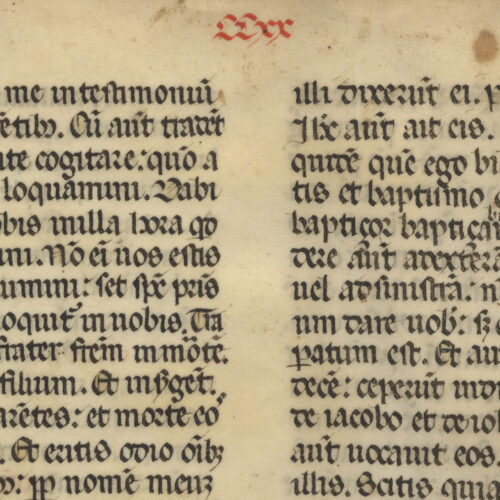 CCxx
me in testimoniū
ētibȝ. Cū aūt traceēt
ite cogitare: quō a
loquamini. Dabi
obis in illa hora qđ
ini. Nō ei uos estis
uimini: set spē pris
oquit᷑ in uobis. Tra
frater frēm in mōte.
filium. Et insȳgent,
arētes: et morte eoˢ
. Et eritis odio oībȝ
ꝓp nomē meuȝ
illi dixerūt ei.
Ihc aūt ait eis.
quitē quē ego bi
tis et baptismo
baptiçor baptiça
dere aūt ad dexterā
uel ad sinistrā: n
um dare uob: sȝ
ꝑatum est. Et au
decē: ceperūt indi
de iacobo et de io
aūt uocauit eos.
illis. Scitis qui